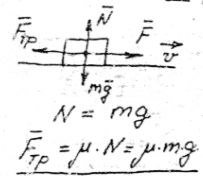 N̅
F̅тр F̅ v̅
mg̅
N = mg
F̅тр = μ · N = μ · m · g